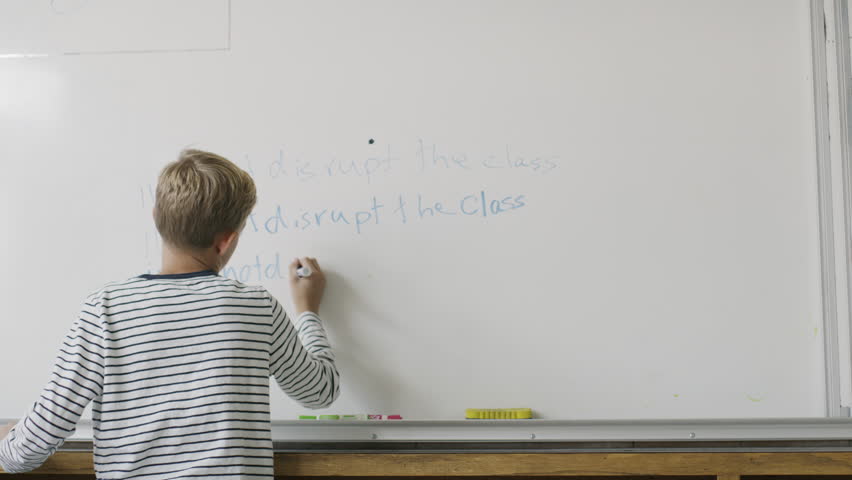 disrupt the class
disrupt the class
not d